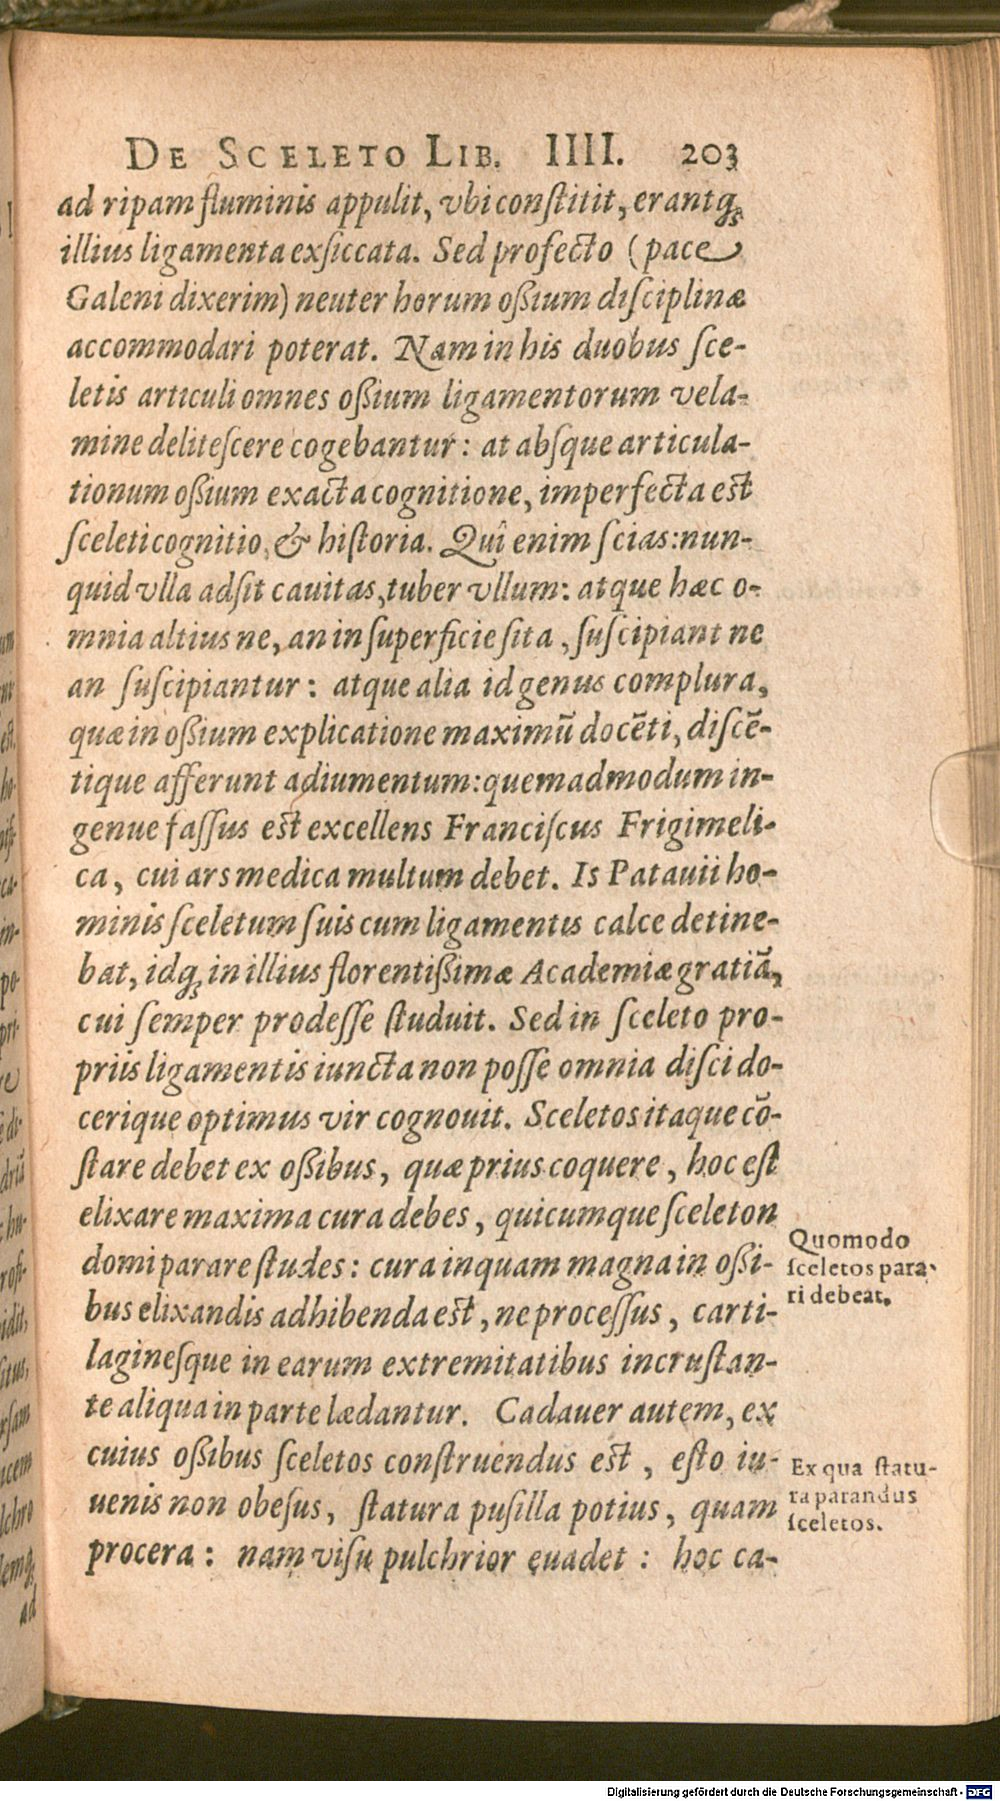 DE SCELETO LIB. IIII. 203
ad ripam fluminis appulit, vbi conſtitit, erantq́;
illius ligamenta exſiccata. Sed profecto (pace
Galeni dixerim) neuter horum oßium diſciplinæ
accommodari poterat. Nam in his duobus ſce-
letis articuli omnes oßium ligamentorum vela-
mine deliteſcere cogebantur: at abſque articula-
tionum oßium exacta cognitione, imperfecta est
ſceleti cognitio, & hiſtoria. Quî enim ſcias: nun-
quid vlla adſit cauitas, tuber vllum: atque hæc o-
mnia altius ne, an in ſuperficie ſita, ſuſcipiant ne
an ſuſcipiantur: atque alia id genus complura,
quæ in oßium explicatione maximū docēti, diſcē-
tique afferunt adiumentum: quemadmodum in-
genue faſſus est excellens Franciſcus Frigimeli-
ca, cui ars medica multum debet. Is Patauii ho-
minis ſceletum ſuis cum ligamentis calce detine-
bat, idq́; in illius florentißimæ Academiæ gratiā,
cui ſemper prodeſſe ſtuduit. Sed in ſceleto pro-
priis ligamentis iuncta non poſſe omnia diſci do-
cerique optimus vir cognouit. Sceletos itaque cō-
ſtare debet ex oßibus, quæ prius coquere, hoc eſt
elixare maxima cura debes, quicumque ſceleton
domi parare ſtudes: cura inquam magna in oßi-
bus elixandis adhibenda est, ne proceſſus, carti-
lagineſque in earum extremitatibus incruſtan-
te aliqua in parte lædantur. Cadauer autem, ex
cuius oßibus ſceletos conſtruendus est, eſto iu-
uenis non obeſus, ſtatura puſilla potius, quam
procera: nam viſu pulchrior euadet: hoc ca-
Quomodo
ſceletos para-
ri debeat.
Ex qua ſtatu-
ra parandus
ſceletos.
Digitalisierung gefördert durch die Deutsche Forschungsgemeinschaft - DFG